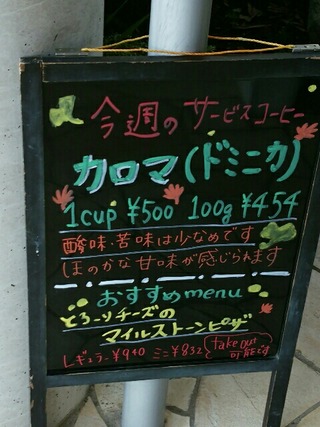 今週のサービスコーヒー
カロマ(ドミニカ)
1cup ¥500 100g ¥454
酸味・苦味は少なめです
ほのかな甘味が感じられます
おすすめmenu
とろ〜りチーズの
マイルストーンピザ
レギュラー¥940 ミニ¥832 (take out
可能です)